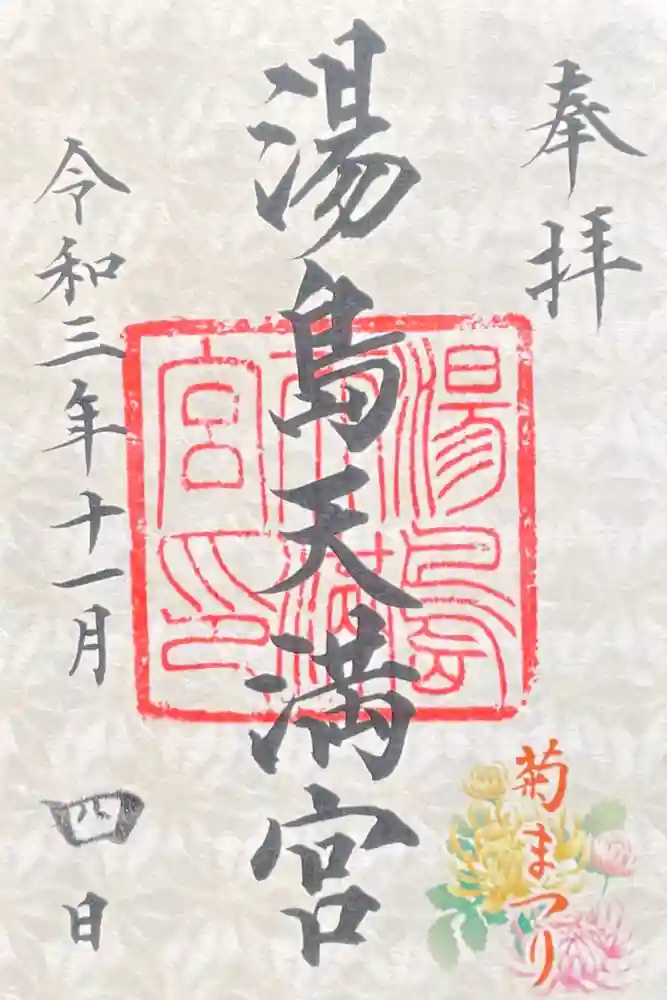 奉拝
湯島天満宮
湯島天満宮印
令和三年十一月四日
菊まつり